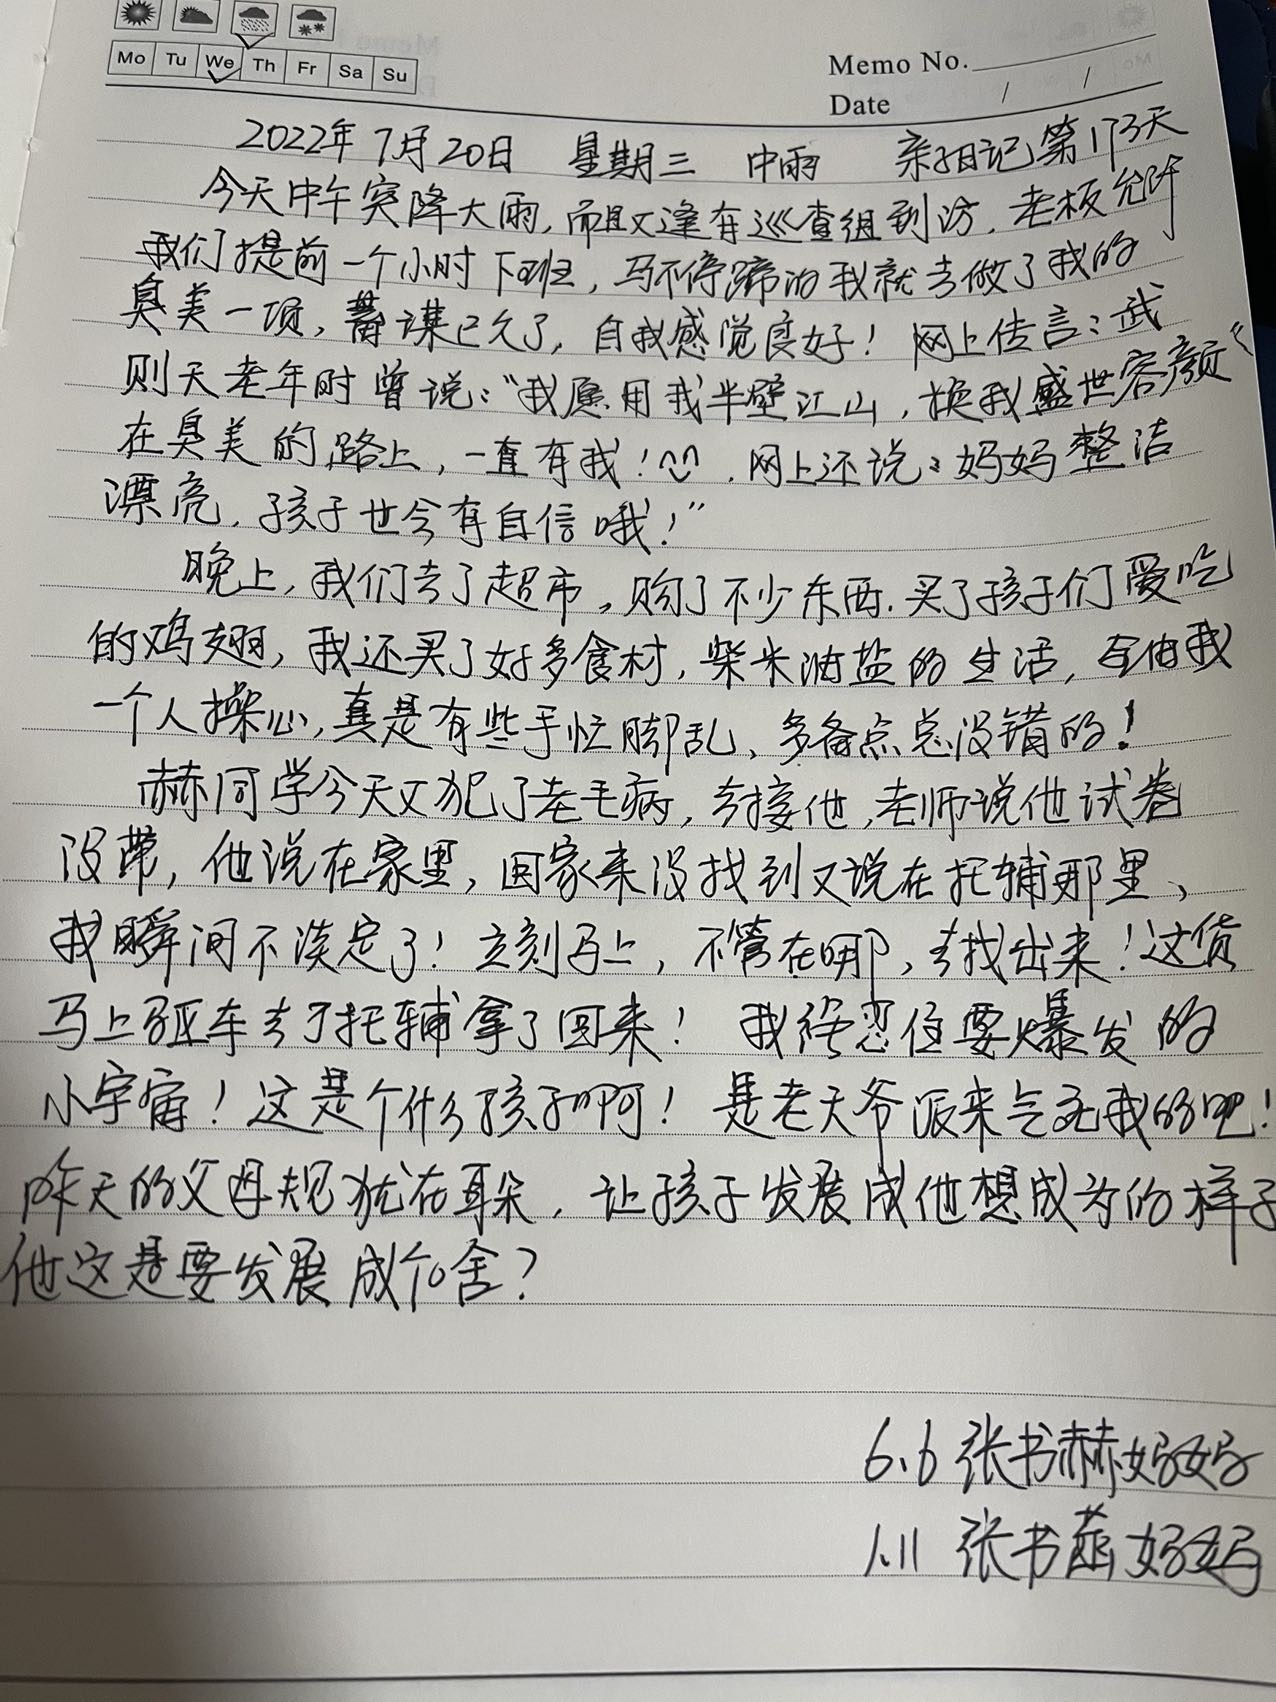 Mo Tu We Th Fr Sa Su
Memo No.
Date / /
2022年7月20日 星期三 中雨 亲子日记第173天
今天中午突降大雨，而且又逢有巡查组到访，老板允许
我们提前一个小时下班，马不停蹄的我就去做了我的
臭美一项，蓄谋已久了，自我感觉良好！网上传言：武
则天老年时曾说：“我愿用我半壁江山，换我盛世容颜“
在臭美的路上，一直有我！网上还说：妈妈整洁
漂亮，孩子也会有自信哦！”
晚上，我们去了超市，购了不少东西，买了孩子们爱吃
的鸡翅，我还买了好多食材，柴米油盐的生活，全由我
一个人操心，真是有些手忙脚乱、多备点总没错的！
赫同学今天又犯了老毛病，去接他，老师说他试卷
没带，他说在家里，回家来没找到又说在托辅那里、
我瞬间不淡定了！立刻马上，不管在哪，去找出来！这货
马上驱车去了托辅拿了回来！我强忍住要爆发的
小宇宙！这是个什么孩子啊！是老天爷派来气死我的吧！
昨天的父母规犹在耳朵，让孩子发展成他想成为的样子
他这是要发展成个啥？
6.6 张书赫妈妈
1.11 张书菡妈妈